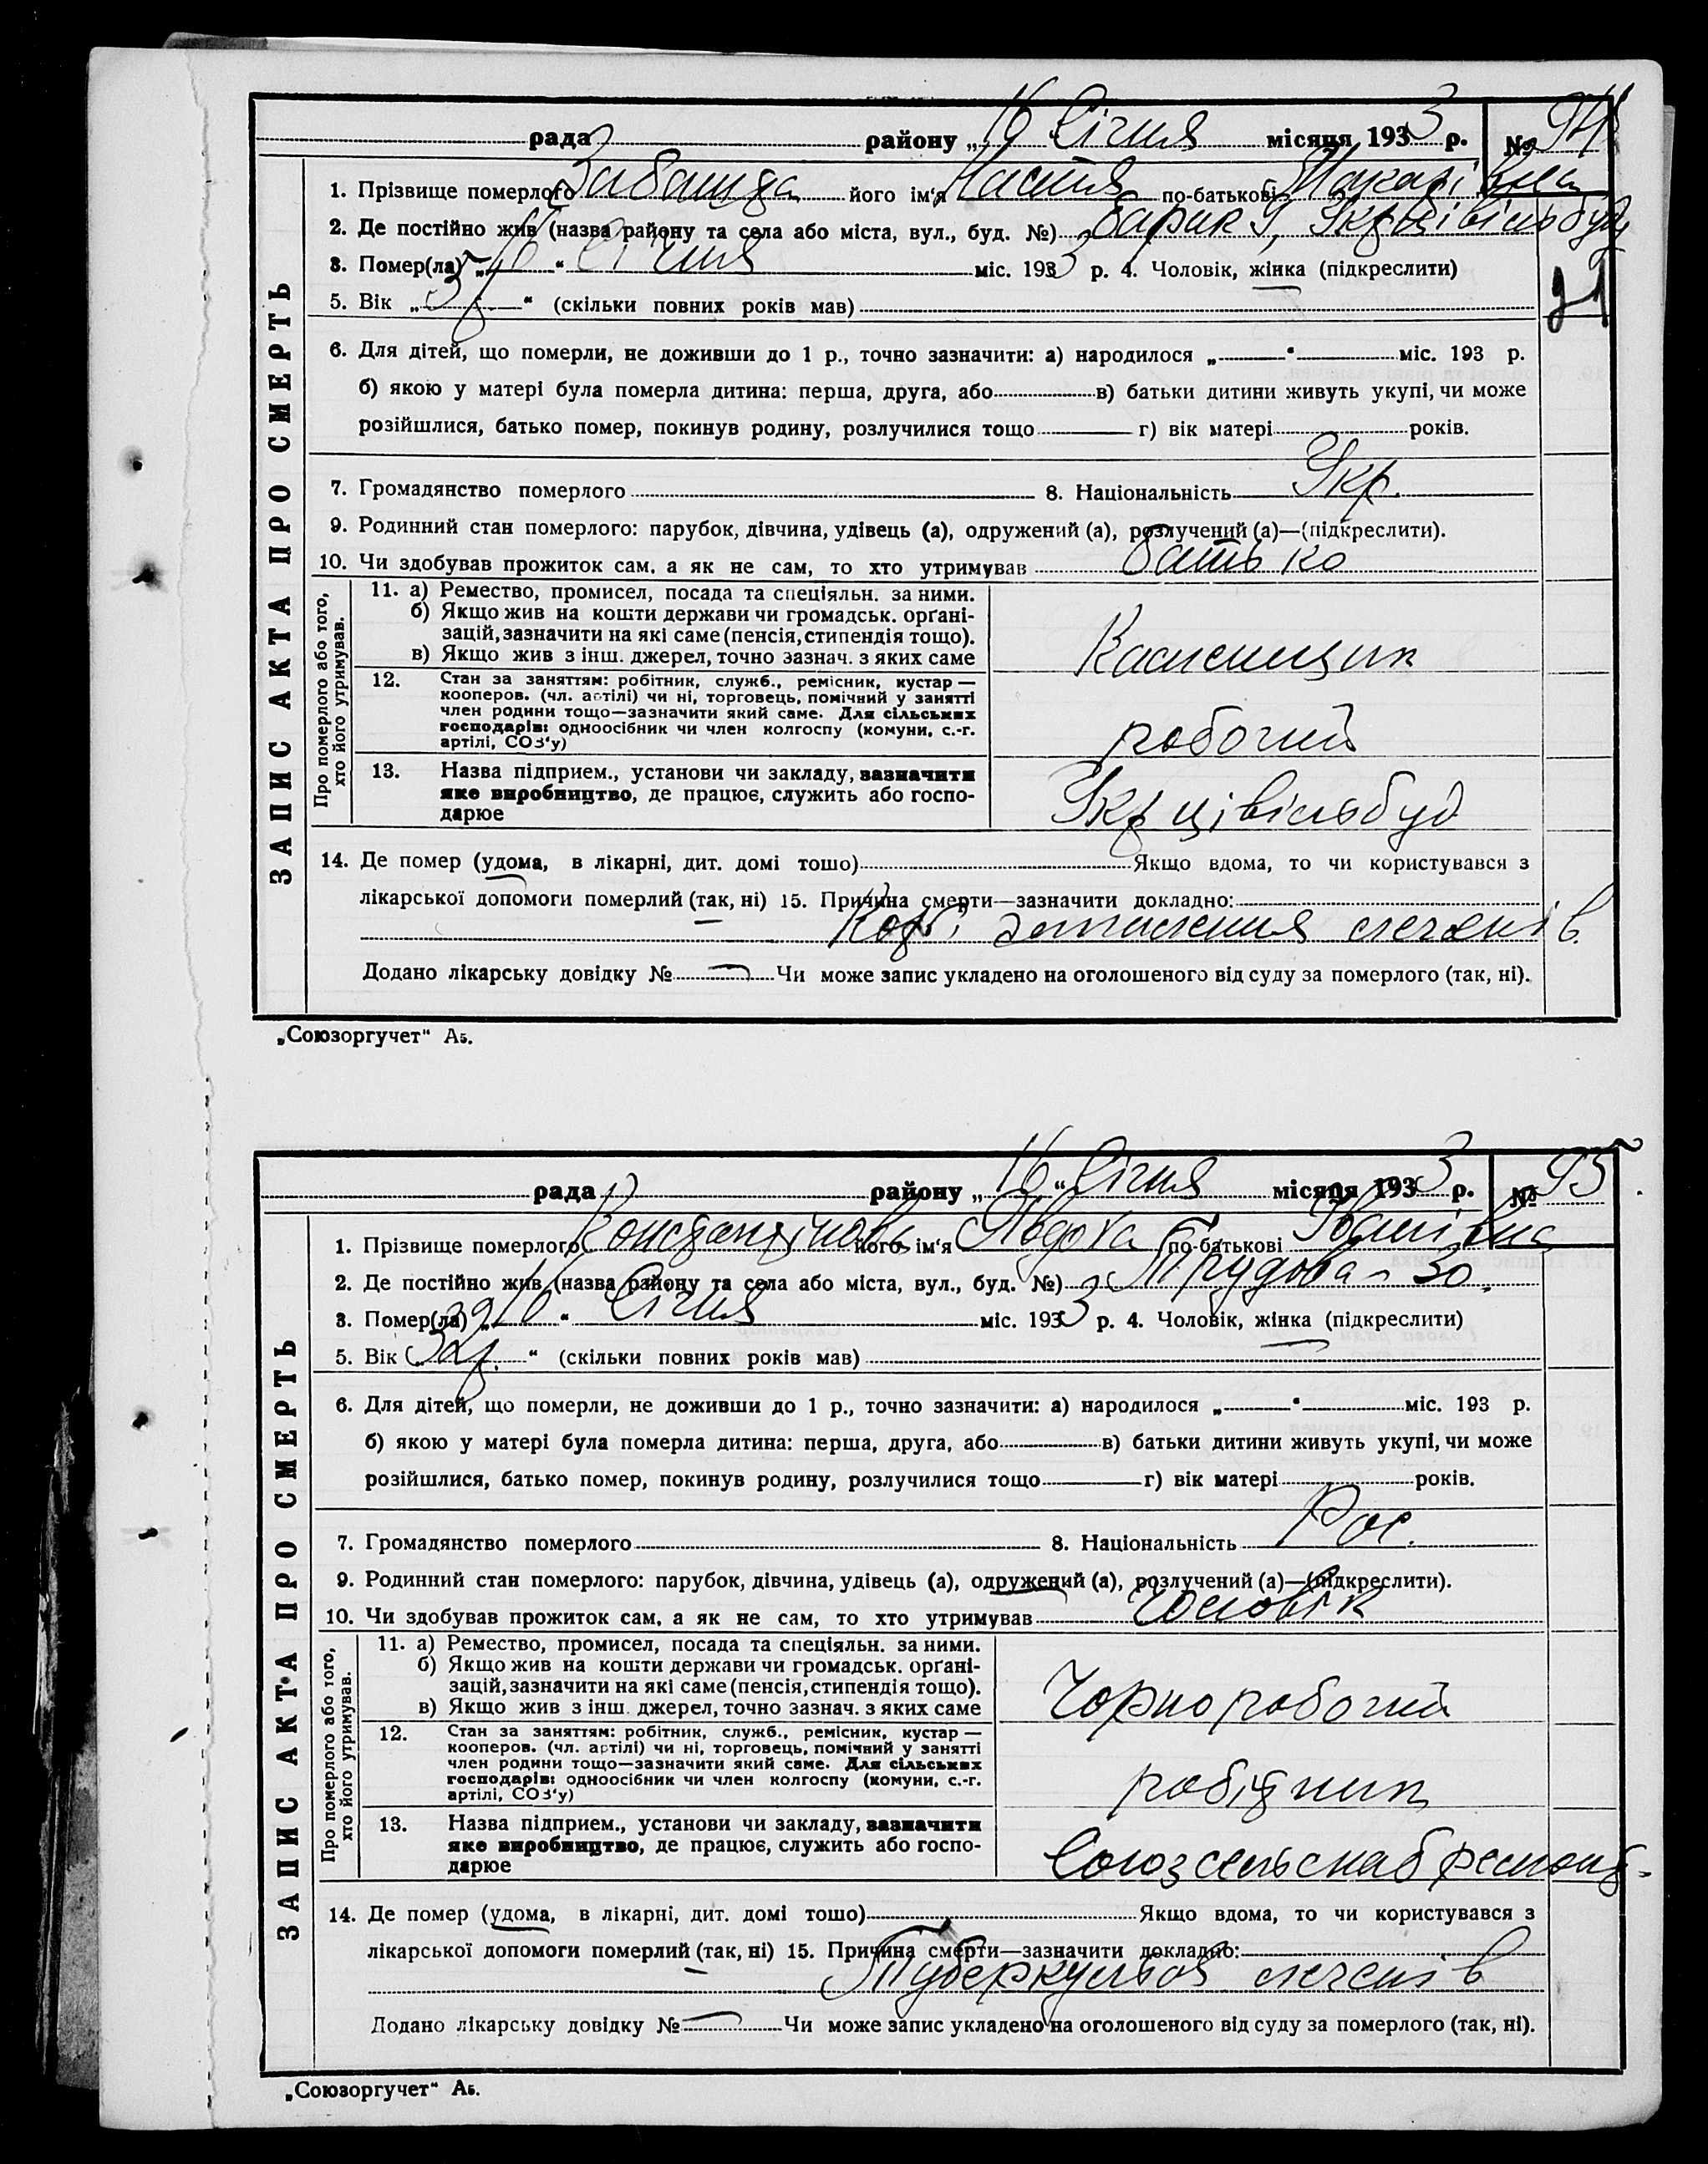 рада районну „ 16 " Січня місяця 1933 р. № 94
1. Прізвище померлого Забашта його ім'я Настя по-батькові Макарівна
2. Де постійно жив (назва району та села або міста, вул., буд. №) Барак 9, Укрцівільбуд
3. Помер(ла) „ 16 " Січня міс. 1933 р. 4. Чоловік, жінка (підкреслити)
5. Вік „ 3 р. " (скільки повних років мав)
6. Для дітей, що померли, не доживши до 1 р., точно зазначити: а) народилося „ " міс. 193 р.
б) якою у матері була померла дитина: перша, друга, або в) батьки дитини живуть укупі, чи може
розійшлися, батько помер, покинув родину, розлучилися тощо г) вік матері років.
7. Громадянство померлого 8. Національність Укр.
9. Родинний стан померлого: парубок, дівчина, удівець (а), одружений (а), розлучений (а)—(підкреслити).
10. Чи здобував прожиток сам, а як не сам, то хто утримував батько
ЗАПИС АКТА ПРО СМЕРТЬ
Про померлого або того,
хто його утримував.
11. а) Ремество, промисел, посада та спеціяльн. за ними.
б) Якщо жив на кошти держави чи громадськ. орґані-
зацій, зазначити на які саме (пенсія, стипендія тощо).
в) Якщо жив з інш. джерел, точно зазнач. з яких саме
Каменщик
12. Стан за заняттям: робітник, служб., ремісник, кустар —
кооперов. (чл. артілі) чи ні, торговець, помічний у занятті
член родини тощо—зазначити який саме. Для сільських
господарів: одноосібник чи член колгоспу (комуни, с.-г.
артілі, СОЗ'у)
робочий
13. Назва підприєм., установи чи закладу, зазначити
яке виробництво, де працює, служить або госпо-
дарює
Укрцівільбуд
14. Де помер (удома, в лікарні, дит. домі тошо) Якщо вдома, то чи користувався з
лікарської допомоги померлий (так, ні) 15. Причина смерти—зазначити докладно:
запалення легенів
Додано лікарську довідку № Чи може запис укладено на оголошеного від суду за померлого (так, ні).
„Союзоргучет" А5.
рада району „ 16 " Січня місяця 1933 р. № 95
1. Прізвище померлого Константінова його ім'я Явдоха по-батькові Іванівна
2. Де постійно жив (назва району та села або міста, вул., буд. №) Трудова 30
3. Помер(ла) „ 16 " Січня міс. 1933 р. 4. Чоловік, жінка (підкреслити)
5. Вік „ 32 р. " (скільки повних років мав)
6. Для дітей, що померли, не доживши до 1 р., точно зазначити: а) народилося „ " міс. 193 р.
б) якою у матері була померла дитина: перша, друга, або в) батьки дитини живуть укупі, чи може
розійшлися, батько помер, покинув родину, розлучилися тощо г) вік матері років.
7. Громадянство померлого 8. Національність Рос.
9. Родинний стан померлого: парубок, дівчина, удівець (а), одружений (а), розлучений (а)—(підкреслити).
10. Чи здобував прожиток сам, а як не сам, то хто утримував Чоловік
ЗАПИС АКТА ПРО СМЕРТЬ
Про померлого або того,
хто його утримував.
11. а) Ремество, промисел, посада та спеціяльн. за ними.
б) Якщо жив на кошти держави чи громадськ. орґані-
зацій, зазначити на які саме (пенсія, стипендія тощо).
в) Якщо жив з інш. джерел, точно зазнач. з яких саме
Чорноробочий
12. Стан за заняттям: робітник, служб., ремісник, кустар —
кооперов. (чл. артілі) чи ні, торговець, помічний у занятті
член родини тощо—зазначити який саме. Для сільських
господарів: одноосібник чи член колгоспу (комуни, с.-г.
артілі, СОЗ'у)
робітник
13. Назва підприєм., установи чи закладу, зазначити
яке виробництво, де працює, служить або госпо-
дарює
Союзсельснабремонт
14. Де помер (удома, в лікарні, дит. домі тошо) Якщо вдома, то чи користувався з
лікарської допомоги померлий (так, ні) 15. Причина смерти—зазначити докладно:
Туберкульоз легенів
Додано лікарську довідку № Чи може запис укладено на оголошеного від суду за померлого (так, ні).
„Союзоргучет" А5.